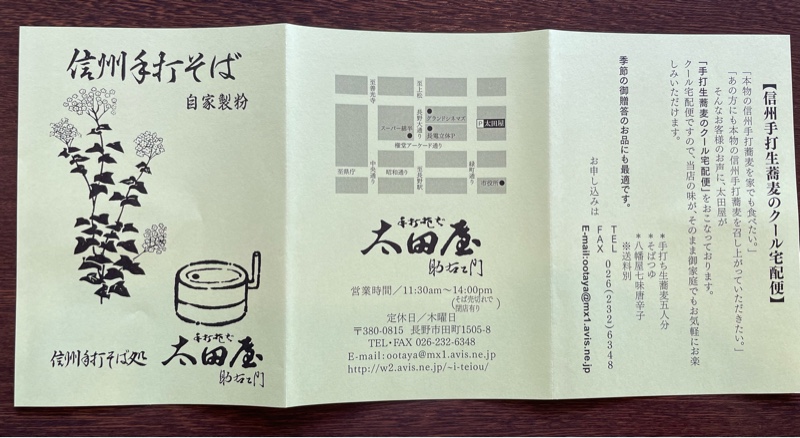 信州手打そば
自家製粉
信州手打そば処
手打そば
太田屋
助右ヱ門
至善光寺
至上松
長野大通り
グランドシネマズ
スーパー綿半
長電立体P
P太田屋
権堂アーケード通り
至県庁
中央通り
昭和通り
至長野駅
緑町通り
市役所
手打そば
太田屋
助右ヱ門
営業時間／11:30am〜14:00pm
(そば売切れで閉店有り)
定休日／木曜日
〒380-0815 長野市田町1505-8
TEL・FAX 026-232-6348
E-mail:ootaya@mx1.avis.ne.jp
http://w2.avis.ne.jp/~i-teiou/
【信州手打生蕎麦のクール宅配便】
「本物の信州手打蕎麦を家でも食べたい。」
「あの方にも本物の信州手打蕎麦を召し上がっていただきたい。」
そんなお客様のお声に、太田屋が
「手打生蕎麦のクール宅配便」をおこなっております。
クール宅配便ですので、当店の味が、そのまま御家庭でもお気軽にお楽
しみいただけます。
＊手打ち生蕎麦五人分
＊そばつゆ
＊八幡屋七味唐辛子
※送料別
季節の御贈答のお品にも最適です。
お申し込みは
TEL
FAX
026(232)6348
E-mail:ootaya@mx1.avis.ne.jp